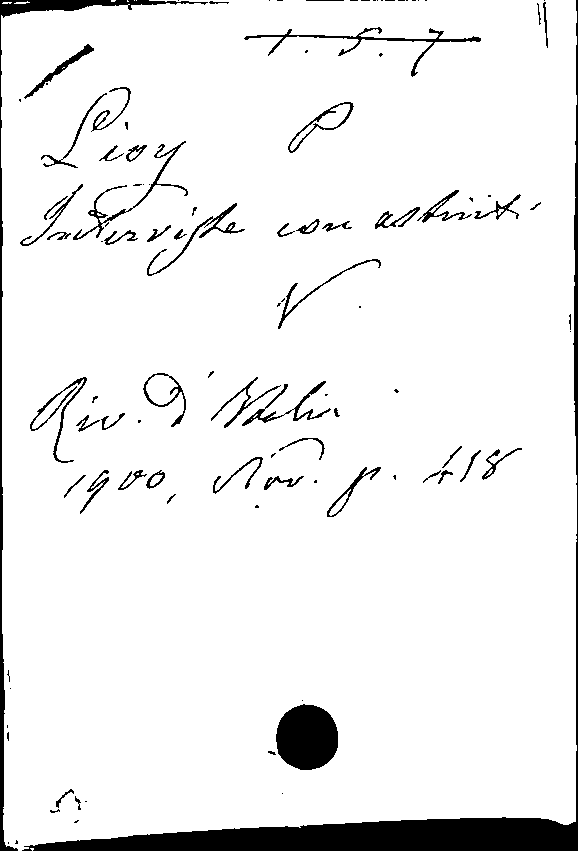 1. 5. 7
Lioy P
Interviste con
V.
Riv. d'Italia
1900, Nov. p. 418